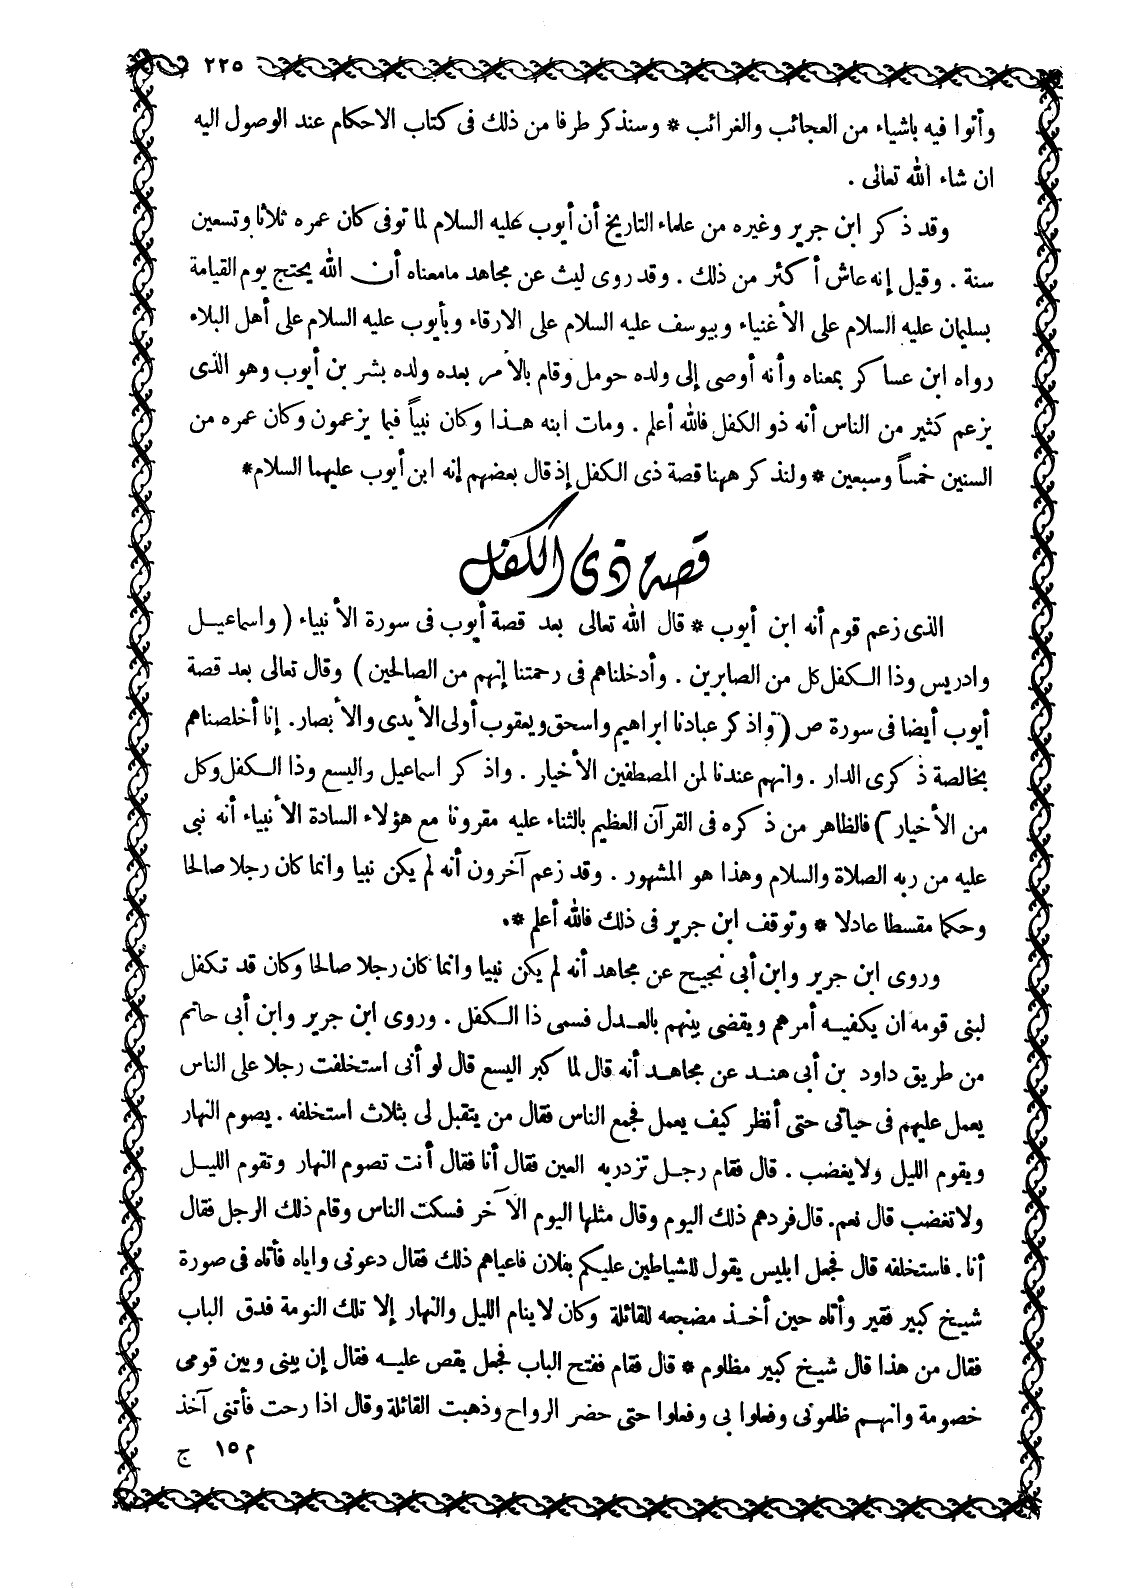 ٢٢٥
وأتوا فيه باشياء من العجائب والغرائب * وسنذكر طرفا من ذلك فى كتاب الاحكام عند الوصول اليه
ان شاء الله تعالى .
وقد ذكر ابن جرير وغيره من علماء التاريخ أن أيوب عليه السلام لما توفى كان عمره ثلاثا وتسعين
سنة . وقيل إنه عاش أكثر من ذلك . وقد روى ليث عن مجاهد مامعناه أن الله يحتج يوم القيامة
بسليمان عليه السلام على الأغنياء وبيوسف عليه السلام على الارقاء وبأيوب عليه السلام على أهل البلاء
رواه ابن عساكر بمعناه وأنه أوصى إلى ولده حومل وقام بالأمر بعده ولده بشر بن أيوب وهو الذى
يزعم كثير من الناس أنه ذو الكفل فالله أعلم . ومات ابنه هذا وكان نبياً فيما يزعمون وكان عمره من
السنين خمساً وسبعين * ولنذكر ههنا قصة ذى الكفل إذ قال بعضهم إنه ابن أيوب عليهما السلام*
قصة ذى الكفل
الذى زعم قوم أنه ابن أيوب * قال الله تعالى بعد قصة أيوب فى سورة الأنبياء ( واسماعيل
وادريس وذا الكفل كل من الصابرين . وأدخلناهم فى رحمتنا إنهم من الصالحين ) وقال تعالى بعد قصة
أيوب أيضا فى سورة ص ( واذكر عبادنا ابراهيم واسحق ويعقوب أولى الأيدى والأبصار. إنا أخلصناهم
بخالصة ذكرى الدار . وانهم عندنا لمن المصطفين الأخيار . واذكر اسماعيل واليسع وذا الكفل وكل
من الأخيار ) فالظاهر من ذكره فى القرآن العظيم بالثناء عليه مقرونا مع هؤلاء السادة الأنبياء أنه نبى
عليه من ربه الصلاة والسلام وهذا هو المشهور . وقد زعم آخرون أنه لم يكن نبيا وانما كان رجلا صالحا
وحكما مقسطا عادلا * وتوقف ابن جرير فى ذلك فالله أعلم *.
وروى ابن جرير وابن أبى نجيح عن مجاهد أنه لم يكن نبيا وانما كان رجلا صالحا وكان قد تكفل
لبنى قومه ان يكفيه أمرهم ويقضى بينهم بالعدل فسمى ذا الكفل . وروى ابن جرير وابن أبى حاتم
من طريق داود بن أبى هند عن مجاهد أنه قال لما كبر اليسع قال لو أنى استخلفت رجلا على الناس
يعمل عليهم فى حياتى حتى أنظر كيف يعمل فجمع الناس فقال من يتقبل لى بثلاث استخلفه . يصوم النهار
ويقوم الليل ولا يغضب . قال فقام رجل تزدريه العين فقال أنا فقال أنت تصوم النهار وتقوم الليل
ولا تغضب قال نعم. قال فردهم ذلك اليوم وقال مثلها اليوم الآخر فسكت الناس وقام ذلك الرجل فقال
أنا . فاستخلفه قال فجعل ابليس يقول للشياطين عليكم بفلان فاعياهم ذلك فقال دعونى واياه فأتاه فى صورة
شيخ كبير فقير وأتاه حين أخذ مضجعه للقائلة وكان لا ينام الليل والنهار إلا تلك النومة فدق الباب
فقال من هذا قال شيخ كبير مظلوم * قال فقام ففتح الباب فجعل يقص عليه فقال إن بينى وبين قومى
خصومة وانهم ظلمونى وفعلوا بى وفعلوا حتى حضر الرواح وذهبت القائلة وقال اذا رحت فأتنى آخذ
م ١٥ ج